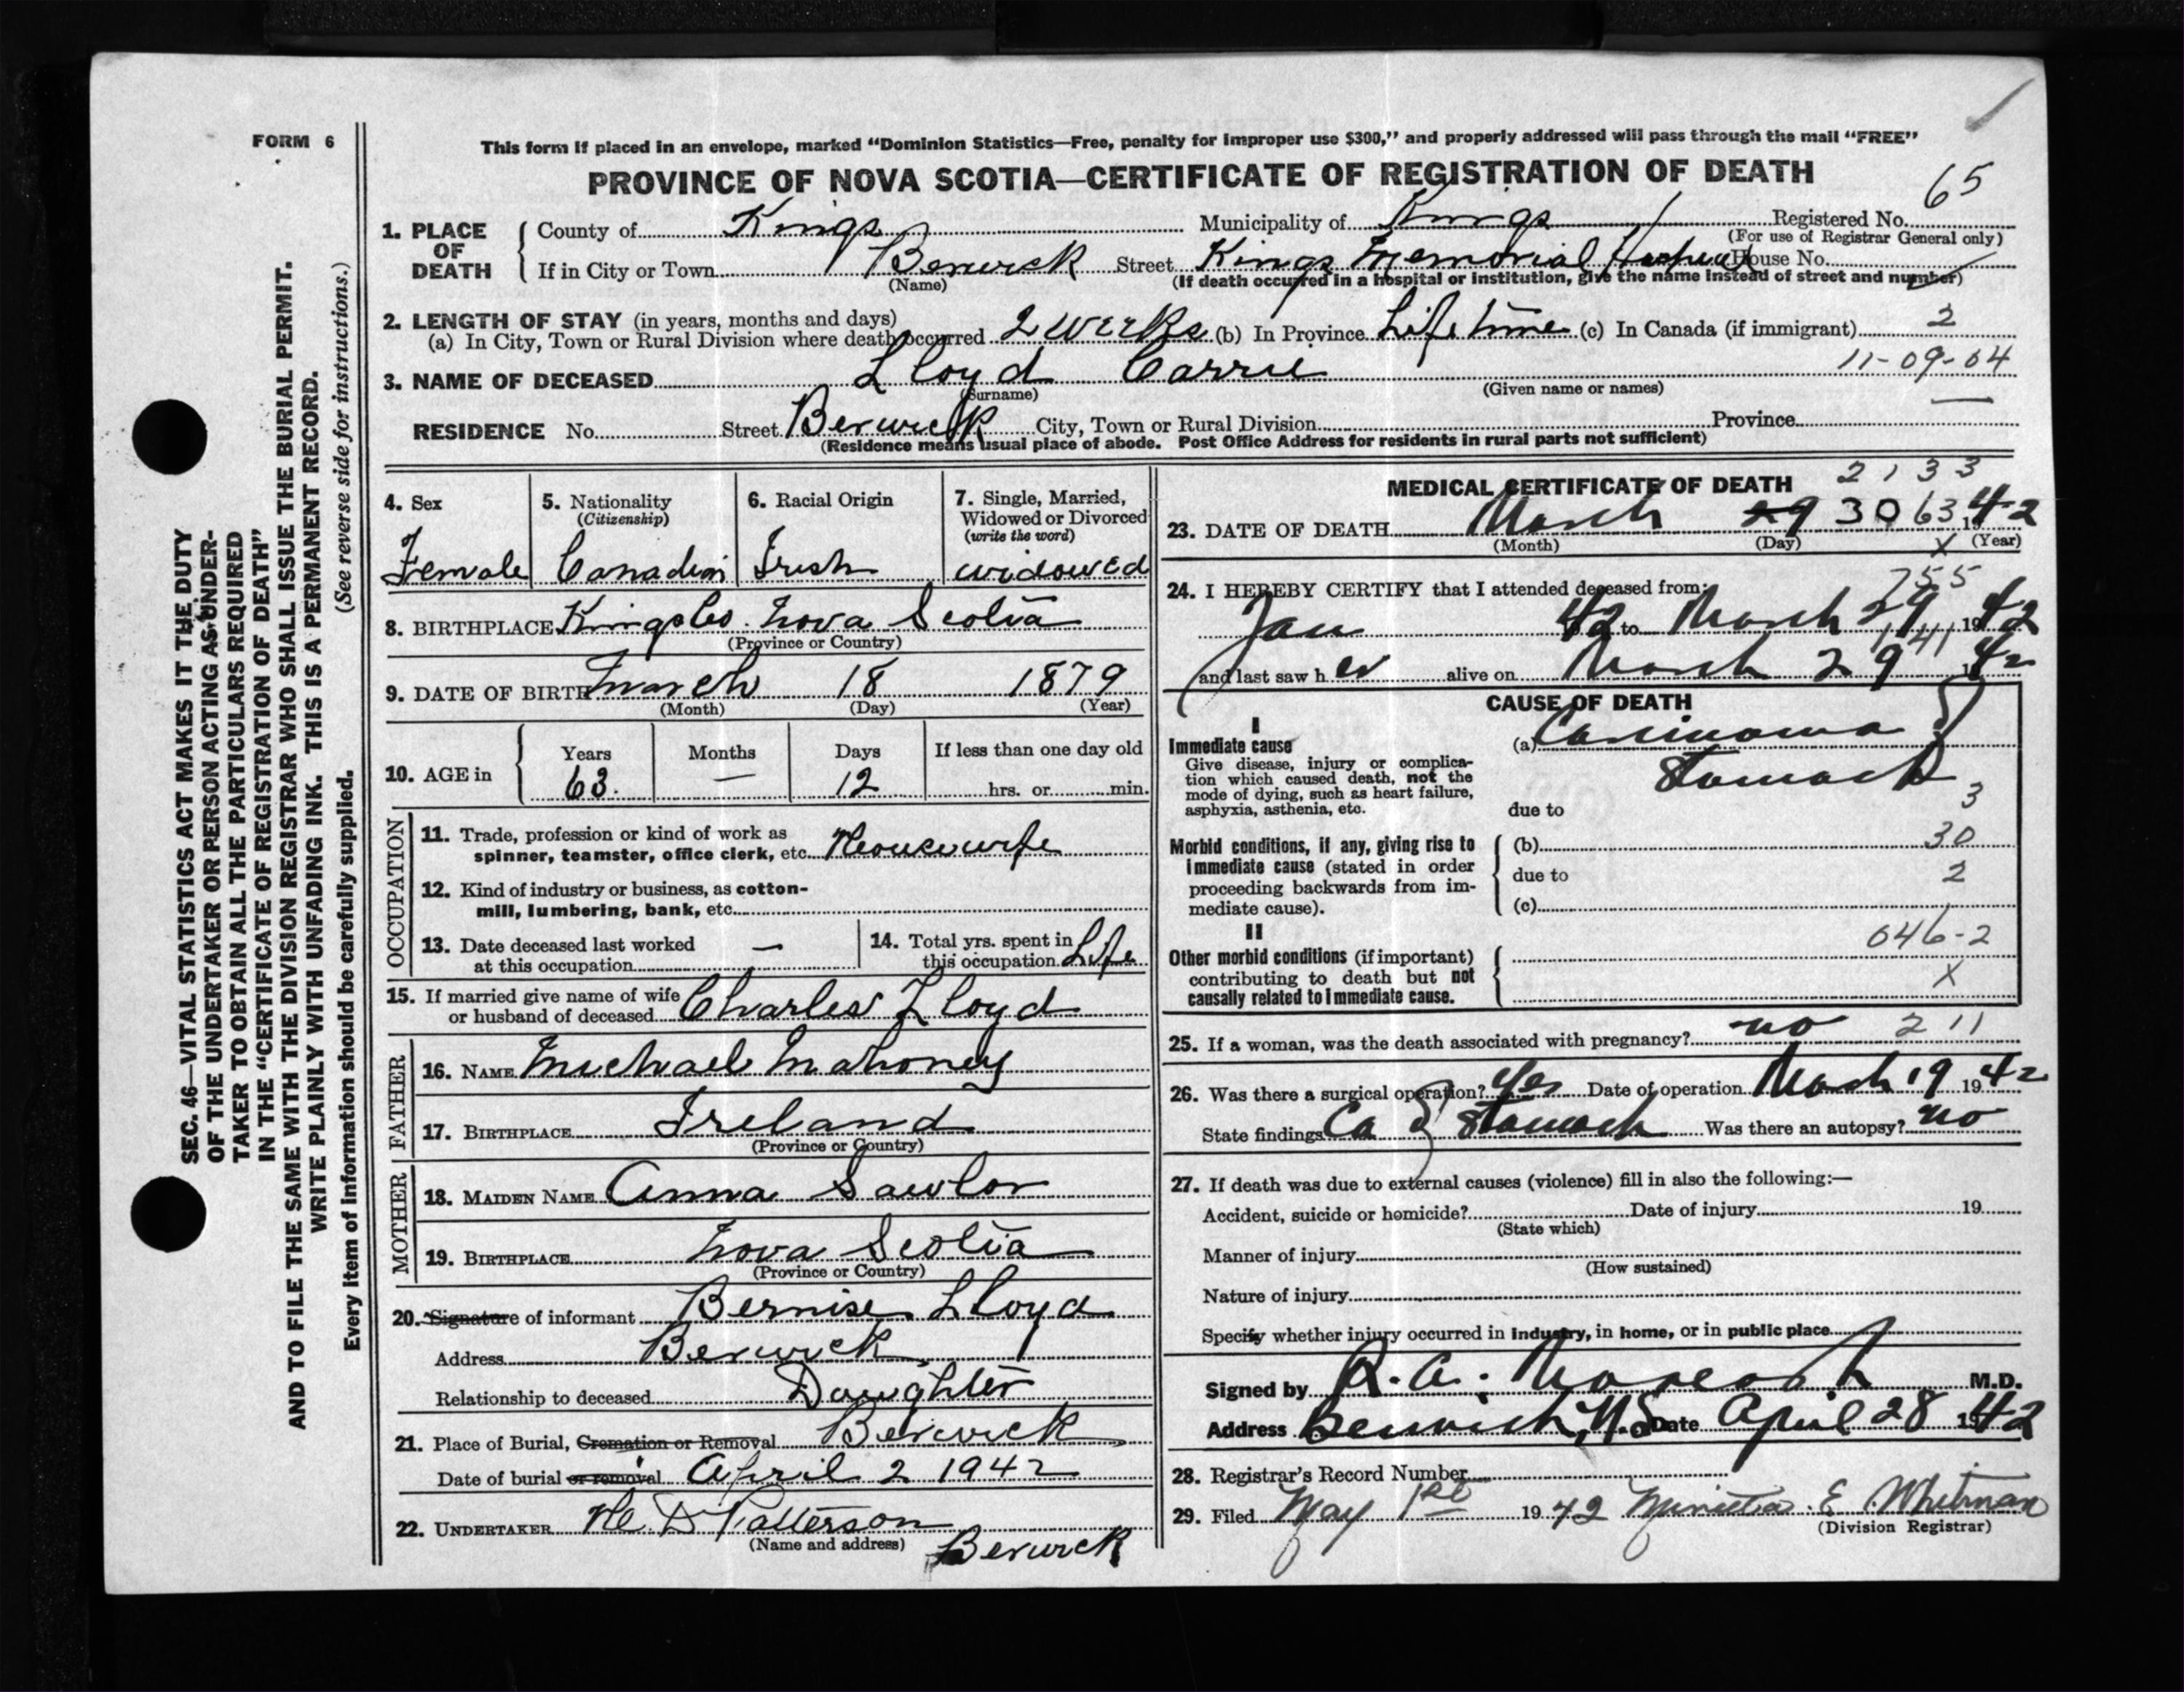 FORM 6
This form if placed in an envelope, marked "Dominion Statistics—Free, penalty for improper use $300," and properly addressed will pass through the mail "FREE"
PROVINCE OF NOVA SCOTIA—CERTIFICATE OF REGISTRATION OF DEATH
65
1. PLACE OF DEATH
County of Kings Municipality of Kings Registered No.
(For use of Registrar General only)
If in City or Town Berwick Street Kings Memorial Hospital House No.
(Name) (If death occurred in a hospital or institution, give the name instead of street and number)
2. LENGTH OF STAY (in years, months and days)
(a) In City, Town or Rural Division where death occurred 2 weeks (b) In Province Life time (c) In Canada (if immigrant) 2
3. NAME OF DECEASED Lloyd Carrie 11-09-04
(Surname) (Given name or names)
RESIDENCE No. Street Berwick City, Town or Rural Division Province
(Residence means usual place of abode. Post Office Address for residents in rural parts not sufficient)
4. Sex
Female
5. Nationality
(Citizenship)
Canadian
6. Racial Origin
Irish
7. Single, Married,
Widowed or Divorced
(write the word)
widowed
8. BIRTHPLACE Kings Co. Nova Scotia
(Province or Country)
9. DATE OF BIRTH March 18 1879
(Month) (Day) (Year)
10. AGE in
Years Months Days If less than one day old
63. — 12 hrs. or min.
OCCUPATION
11. Trade, profession or kind of work as
spinner, teamster, office clerk, etc. Housewife
12. Kind of industry or business, as cotton-
mill, lumbering, bank, etc.
13. Date deceased last worked
at this occupation —
14. Total yrs. spent in
this occupation Life
15. If married give name of wife
or husband of deceased Charles Lloyd
FATHER
16. NAME Michael Mahoney
17. BIRTHPLACE Ireland
(Province or Country)
MOTHER
18. MAIDEN NAME Anna Sawlor
19. BIRTHPLACE Nova Scotia
(Province or Country)
20. Signature of informant Bernise Lloyd
Address Berwick
Relationship to deceased Daughter
21. Place of Burial, Cremation or Removal Berwick
Date of burial or removal April 2 1942
22. UNDERTAKER H. D Patterson
(Name and address) Berwick
MEDICAL CERTIFICATE OF DEATH 2133
23. DATE OF DEATH March 29 30 63 1942
(Month) (Day) X (Year)
24. I HEREBY CERTIFY that I attended deceased from:
755
Jan 42 to March 29 1942
141
and last saw her alive on March 29 1942
CAUSE OF DEATH
I
Immediate cause
Give disease, injury or complica-
tion which caused death, not the
mode of dying, such as heart failure,
asphyxia, asthenia, etc.
(a) Carcinoma of
Stomach
due to 3
Morbid conditions, if any, giving rise to
immediate cause (stated in order
proceeding backwards from im-
mediate cause).
(b) 30
due to 2
(c)
II
Other morbid conditions (if important)
contributing to death but not
causally related to immediate cause.
046-2
X
25. If a woman, was the death associated with pregnancy? no 211
26. Was there a surgical operation? Yes Date of operation March 19 1942
State findings Ca of Stomach Was there an autopsy? no
27. If death was due to external causes (violence) fill in also the following:—
Accident, suicide or homicide? Date of injury 19
(State which)
Manner of injury
(How sustained)
Nature of injury
Specify whether injury occurred in industry, in home, or in public place
Signed by R. A. M.D.
Address Berwick, N.S. Date April 28 1942
28. Registrar's Record Number
29. Filed May 1st 1942 E. Whitman
(Division Registrar)
SEC. 46—VITAL STATISTICS ACT MAKES IT THE DUTY
OF THE UNDERTAKER OR PERSON ACTING AS UNDER-
TAKER TO OBTAIN ALL THE PARTICULARS REQUIRED
IN THE "CERTIFICATE OF REGISTRATION OF DEATH"
AND TO FILE THE SAME WITH THE DIVISION REGISTRAR WHO SHALL ISSUE THE BURIAL PERMIT.
WRITE PLAINLY WITH UNFADING INK. THIS IS A PERMANENT RECORD.
Every item of information should be carefully supplied. (See reverse side for instructions.)